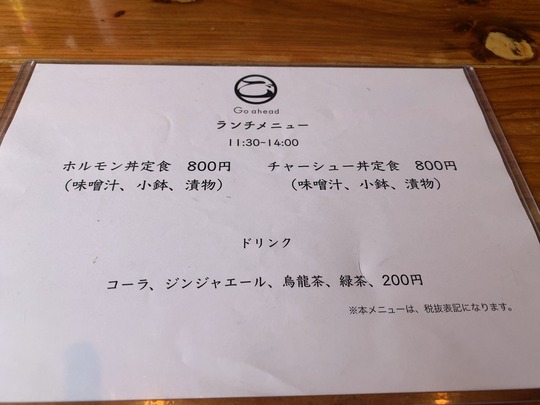 Go ahead
ランチメニュー
11:30~14:00
ホルモン丼定食 800円 チャーシュー丼定食 800円
(味噌汁、小鉢、漬物) (味噌汁、小鉢、漬物)
ドリンク
コーラ、ジンジャエール、烏龍茶、緑茶、200円
※本メニューは、税抜表記になります。